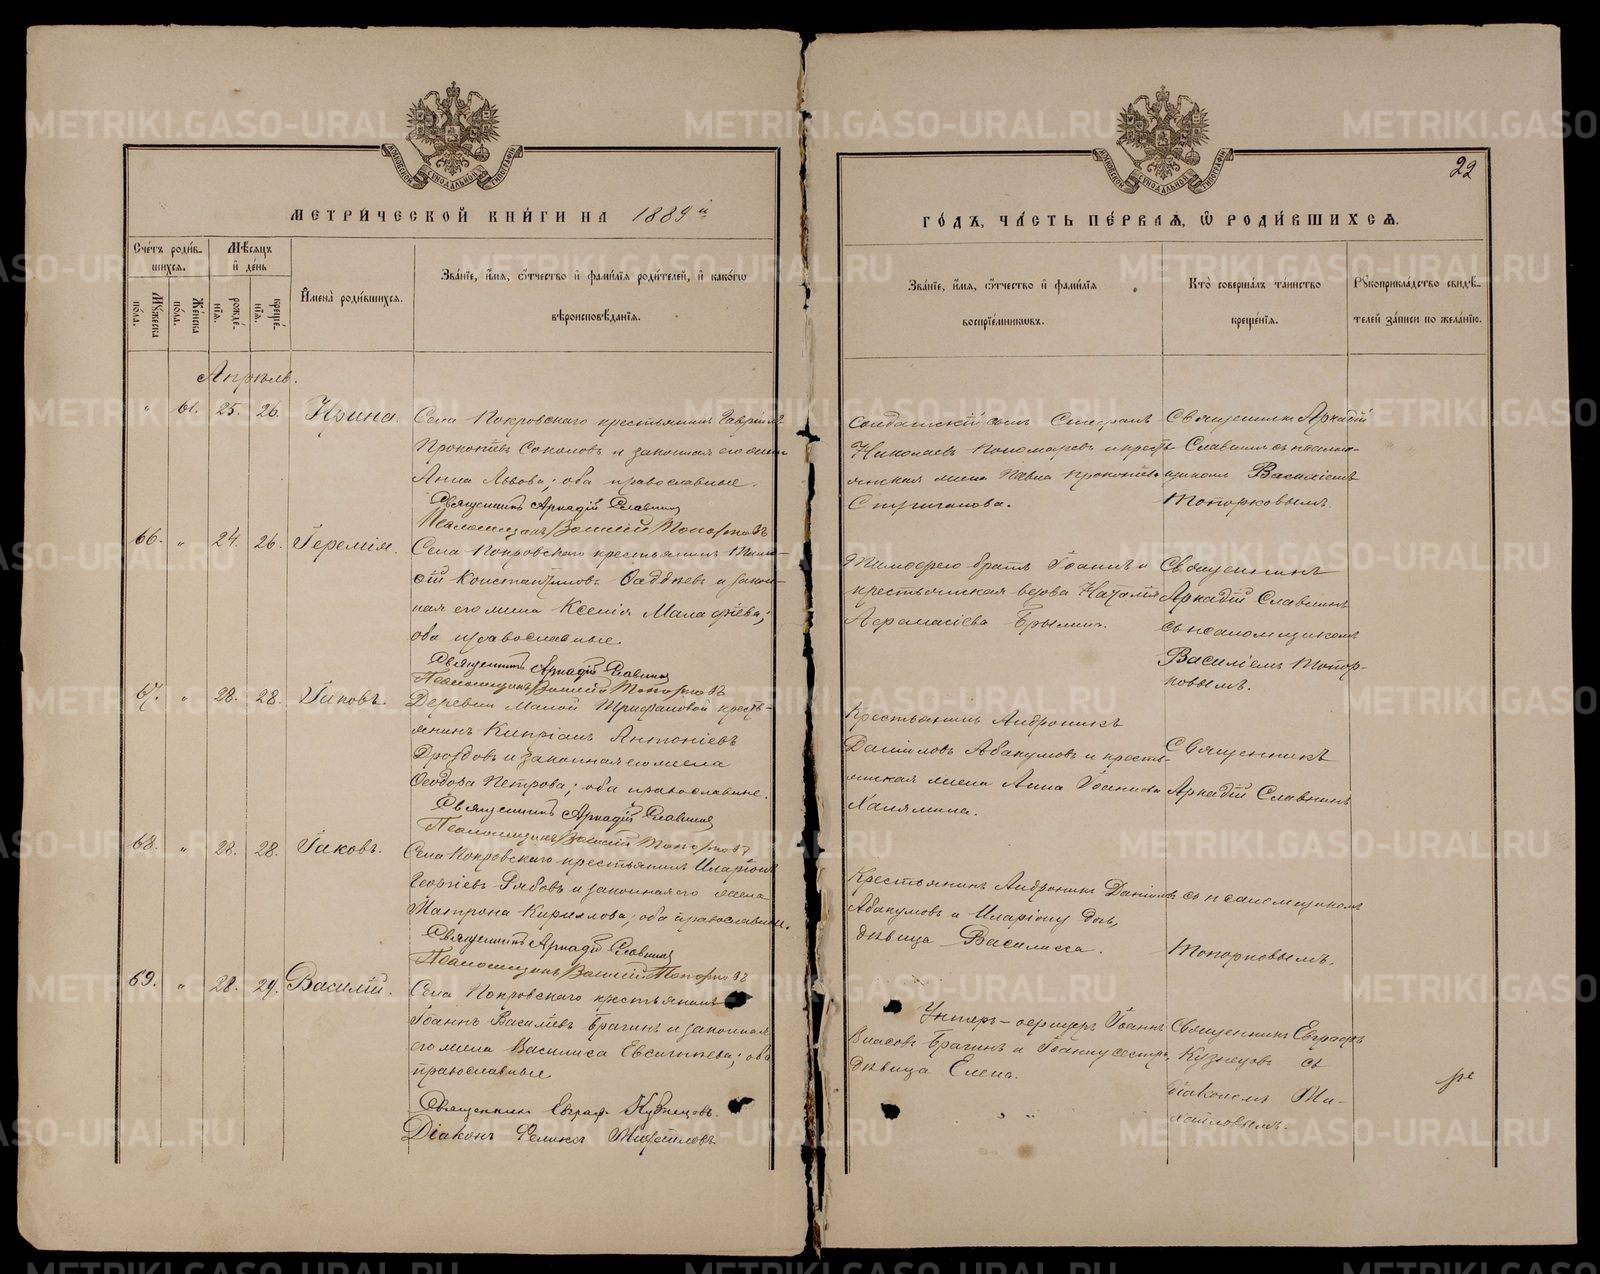 МЕТРИ́ЧЕСКОЙ КНИ́ГИ НА 1889й
ГО́ДЪ, ЧА́СТЬ ПЕ́РВАѦ, Ѡ РОДИ́ВШИХСѦ.
22
Сче́тъ роди́в-
шихсѧ.
Мѣ́сѧцъ
и҆ де́нь
Мꙋ́жеска
по́ла.
Же́нска
по́ла.
рожде́-
нїѧ.
креще́-
нїѧ.
И҆мена̀ роди́вшихсѧ.
Зва́нїе, и҆́мѧ, ѻ҆́тчество и҆ фами́лїѧ роди́телей, и҆ како́гѡ
вѣроисповѣ́данїѧ.
Зва́нїе, и҆́мѧ, ѻ҆́тчество и҆ фами́лїѧ
воспрїе́мникѡвъ.
Кто̀ соверша́лъ та́инство
креще́нїѧ.
Рꙋкоприкла́дство свидѣ́-
телей за́писи по жела́нїю.
Апрѣль.
" 61. 25. 26. Ирина.
Села Покровскаго крестьянинъ Гавріилъ
Прокопіевъ Соколовъ и законная его жена
Анна Львова; оба православные.
Священникъ Аркадій Славнинъ
Псаломщикъ Василій Топорковъ
Солдатскій сынъ Стефанъ
Николаевъ Пономаревъ и кресть-
янская жена Павла Прокопіева
Стриганова.
Священникъ Аркадій
Славнинъ съ псалом-
щикомъ Василіемъ
Топорковымъ.
66. " 24. 26. Іеремія.
Села Покровскаго крестьянинъ Тимо-
ѳей Константиновъ Ѳаддѣевъ и закон-
ная его жена Ксенія Малафѣева;
оба православные.
Священникъ Аркадій Славнинъ
Псаломщикъ Василій Топорковъ
Тимоѳею братъ Іоаннъ и
крестьянская вдова Наталія
Аѳанасіева Брылина.
Священникъ
Аркадій Славнинъ
съ псаломщикомъ
Василіемъ Топор-
ковымъ.
67. " 28. 28. Іаковъ.
Деревни Малой Трифановой кресть-
янинъ Кипріанъ Антоніевъ
Дроздовъ и законная его жена
Ѳеодора Петрова; оба православные.
Священникъ Аркадій Славнинъ
Псаломщикъ Василій Топорковъ
Крестьянинъ Андроникъ
Даніиловъ Абакумовъ и кресть-
янская жена Анна Іоаннова
Халямина.
Священникъ
Аркадій Славнинъ
68. " 28. 28. Іаковъ.
Села Покровскаго крестьянинъ Иларіонъ
Георгіевъ Рябовъ и законная его жена
Матрона Кириллова; оба православные.
Священникъ Аркадій Славнинъ
Псаломщикъ Василій Топорковъ
Крестьянинъ Андроникъ Даніиловъ
Абакумовъ и Иларіону дочь,
дѣвица Василисса.
съ псаломщикомъ
Топорковымъ.
69. " 28. 29. Василій.
Села Покровскаго крестьянинъ
Іоаннъ Василіевъ Брагинъ и законная
его жена Василиса Евсигніева; оба
православные
Священникъ Евграфъ Кузнецовъ.
Діаконъ Феликсъ Михайловъ
Унтеръ-офицеръ Іоаннъ
Власовъ Брагинъ и Іоанну сестра,
дѣвица Елена.
Священникъ Евграфъ
Кузнецовъ съ
діакономъ Ми-
хайловымъ.
METRIKI.GASO-URAL.RU